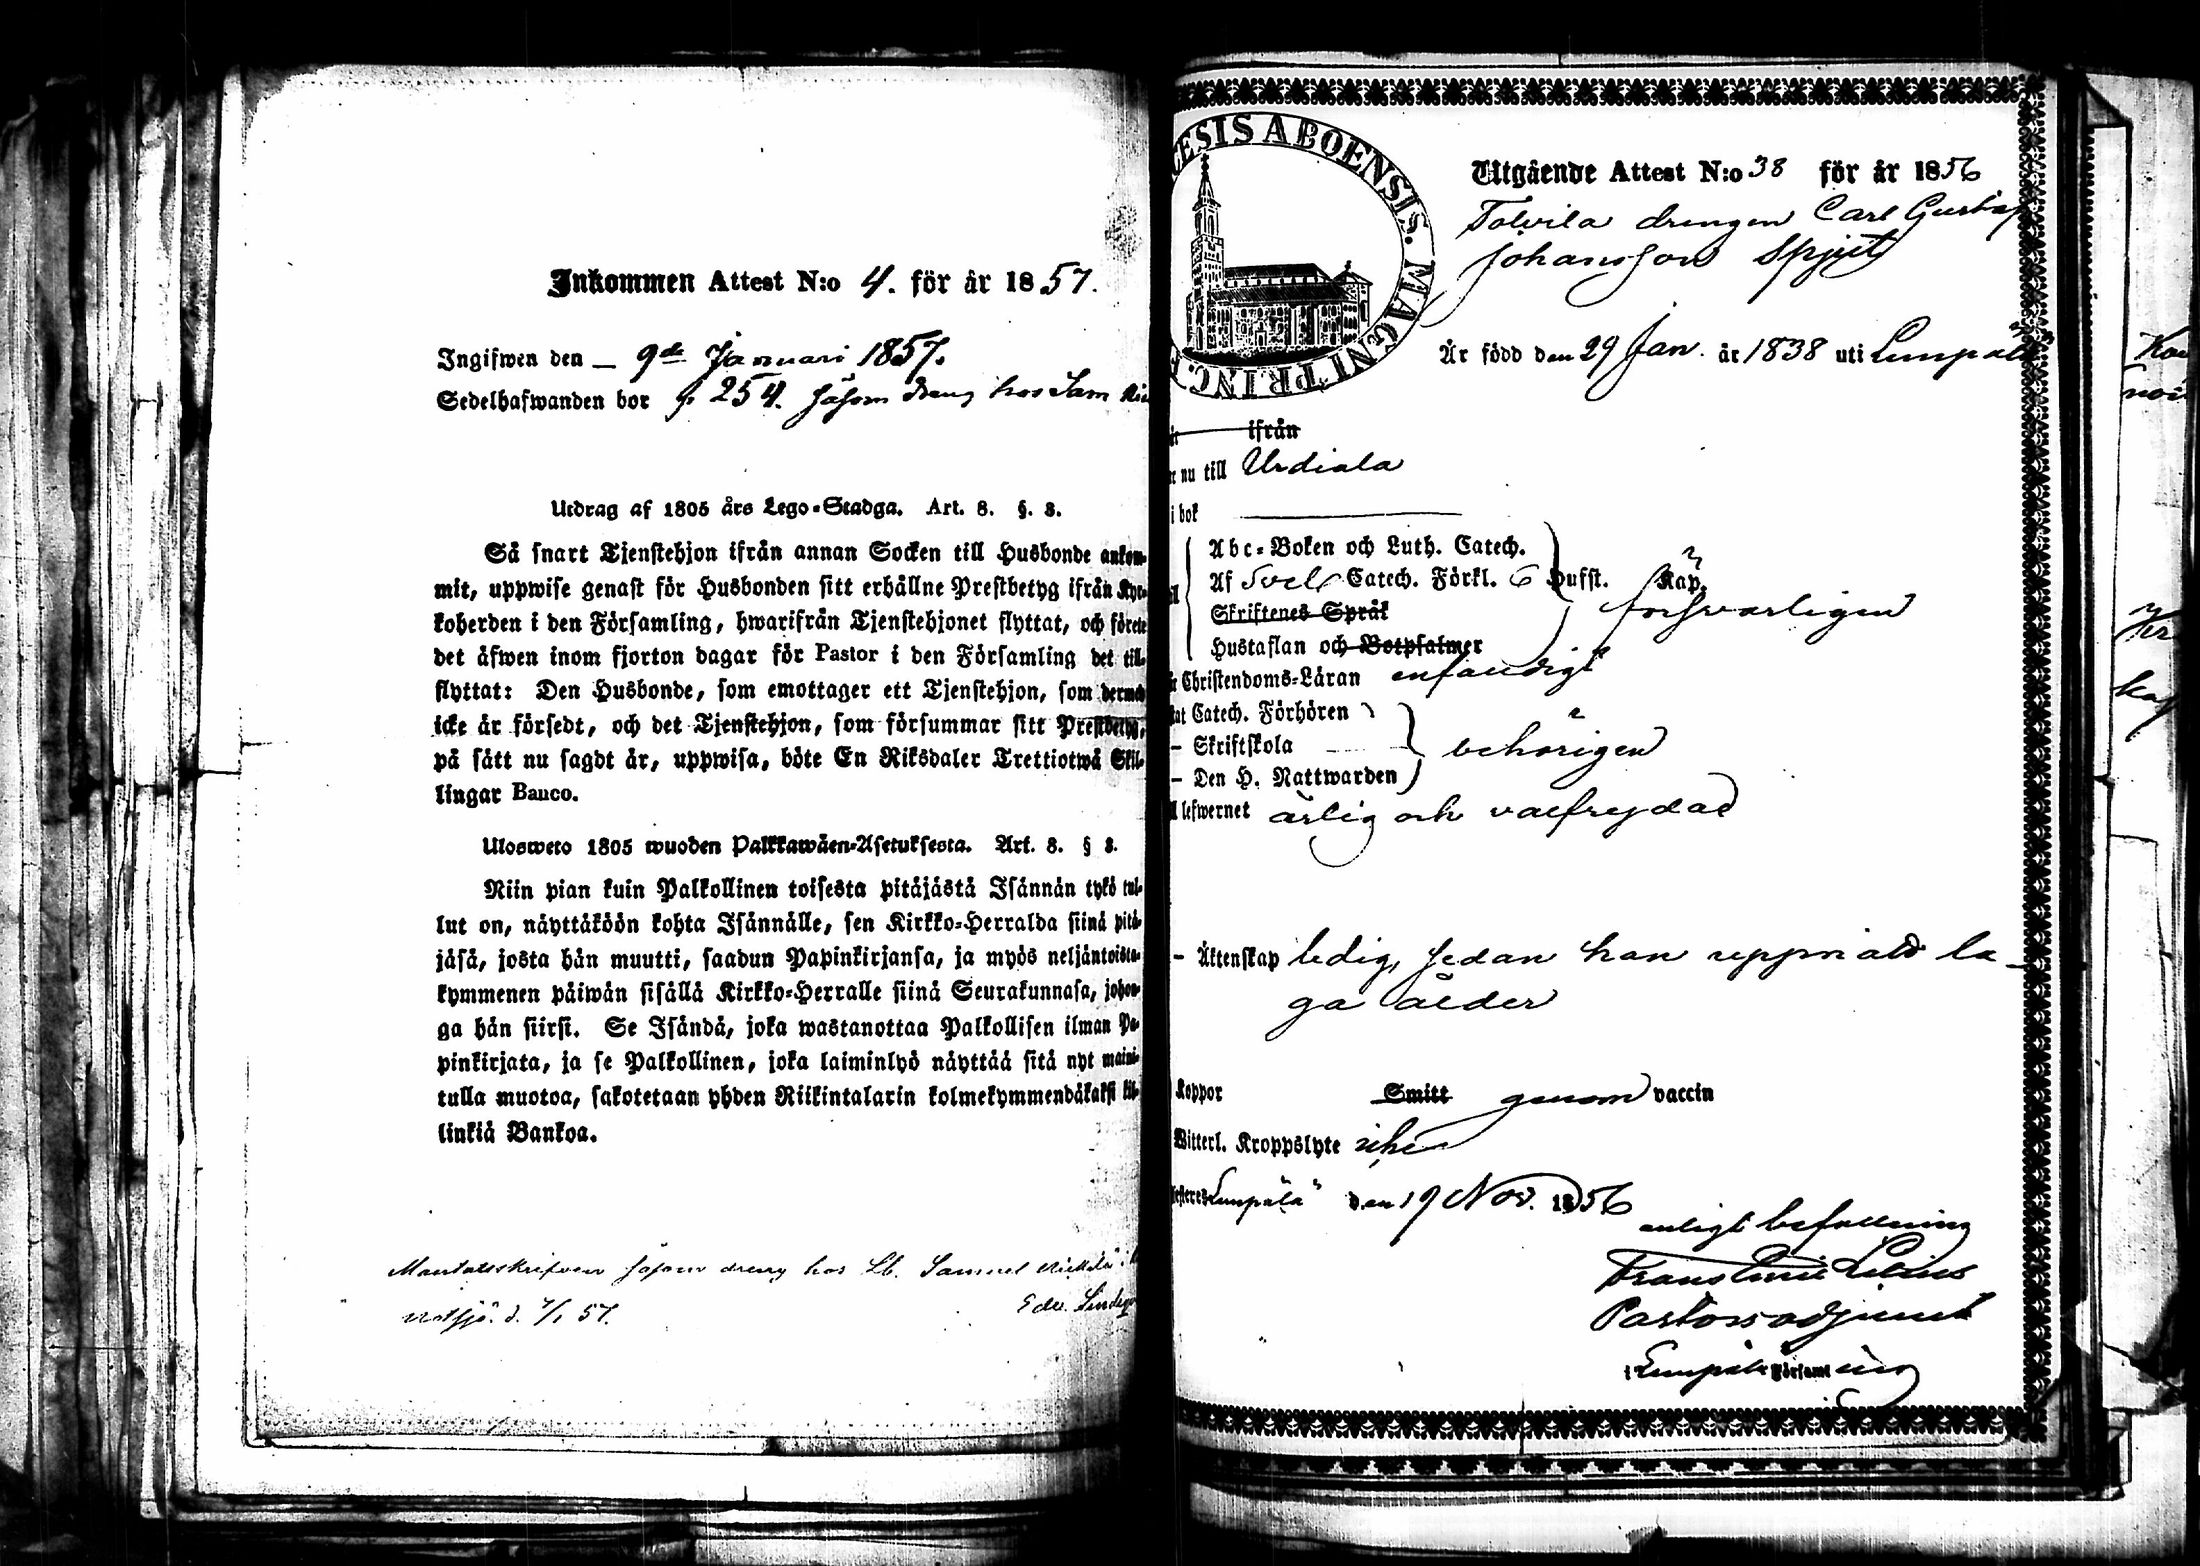 Inkommen Attest N:o 4. för år 1857.
Ingifwen den – 9de Januari 1857.
Sedelhafwanden bor p 254. såsom dreng hos Sam
Utdrag af 1805 års Lego-Stadga. Art. 8. §. 8.
Så snart Tjenstehjon ifrån annan Socken till Husbonde ankom-
mit, uppwise genast för Husbonden sitt erhållne Prestbetyg ifrån Kyr-
koherden i den Församling, hwarifrån Tjenstehjonet flyttat, och förete
det äfwen inom fjorton dagar för Pastor i den Församling det till-
flyttat: Den Husbonde, som emottager ett Tjenstehjon, som dermed
icke är försedt, och det Tjenstehjon, som försummar sitt Prestbetyg,
på sätt nu sagdt är, uppwisa, böte En Riksdaler Trettiotwå Skil-
lingar Banco.
Ulosweto 1805 wuoden Palkkawäen-Asetuksesta. Art. 8. § 8.
Niin pian kuin Palkollinen toisesta pitäjästä Isännän tykö tul-
lut on, näyttäköön kohta Isännälle, sen Kirkko-Herralda siinä pitä-
jäsä, josta hän muutti, saadun Papinkirjansa, ja myös neljäntoista-
kymmenen päiwän sisällä Kirkko-Herralle siinä Seurakunnasa, johon-
ga hän siirsi. Se Isändä, joka wastanottaa Palkollisen ilman Pa-
pinkirjata, ja se Palkollinen, joka laiminlyö näyttää sitä nyt maini-
tulla muotoa, sakotetaan yhden Riikintalarin kolmekymmendäkaksi kil-
linkiä Bankoa.
Mantalsskrifven såsom dreng hos Lb. Samuel
Notsjö. d. 7/1 57.
CESIS ABOENSIS. MAGNI PRINC.
Utgående Attest N:o 38 för år 1856
Tolvila drengen Carl Gustaf
Johansson Spjut
Är född den 29 Jan. år 1838 uti Lempälä
ifrån
nu till Urdiala
i bok
Abc-Boken och Luth. Catech.
Af Svel. Catech. Förkl. 6 Hufst. Kap.
försvarligen
Skriftenes Språk
Hustaflan och Botpsalmer
Christendoms-Läran enfaldigt
Catech. Förhören
– Skriftskola behörigen
– Den H. Nattwarden
lefwernet ärlig och välfreydad
– Äktenskap ledig, sedan han uppnått la-
ga ålder
koppor Smitt genom vaccin
Witterl. Kroppslyte
Lempälä den 19 Nov. 1856
enligt befallning
Frans Emil Lilius
Pastorsadjunct
i Lempälä Församling